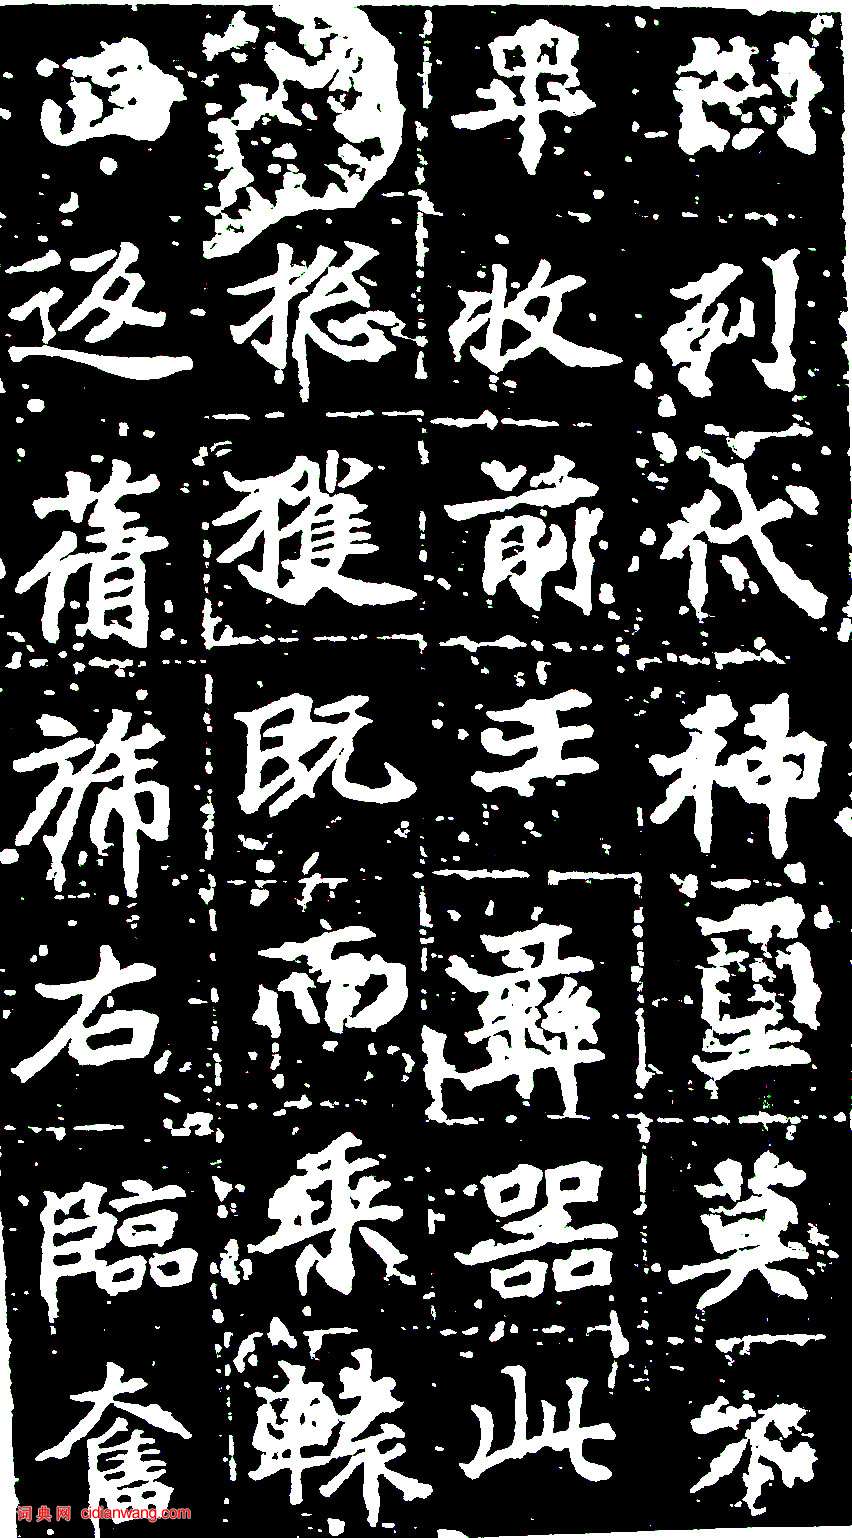 列代神璽莫不
畢收前王彝器此
揔獲既而乘轅
西返蒨旆右臨奮
词典网 cidianwang.com